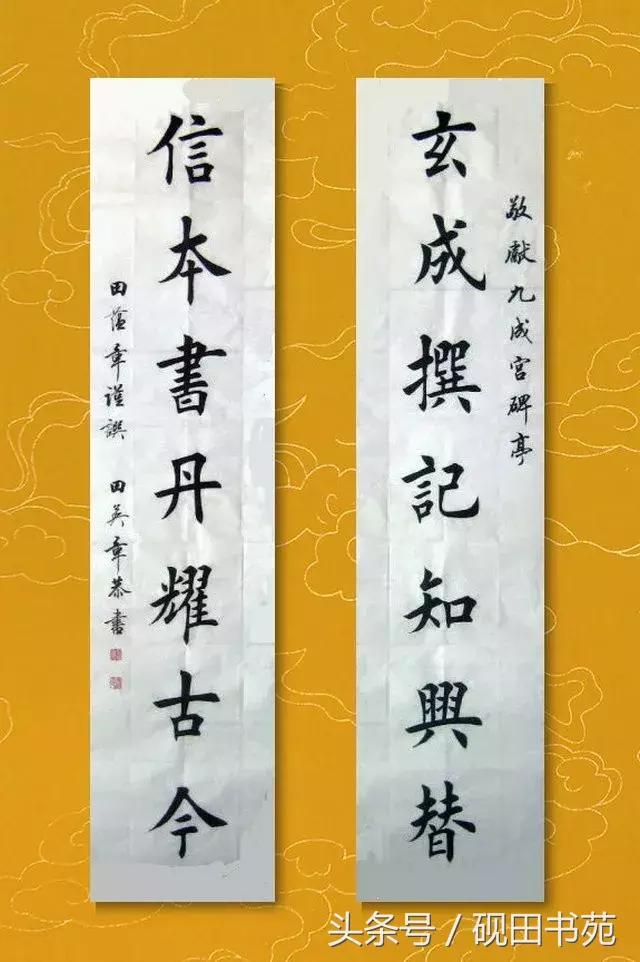 敬獻九成宫碑亭
玄成撰記知興替
信本書丹耀古今
田蕴章谨譔 田英章恭書
头条号 / 砚田书苑